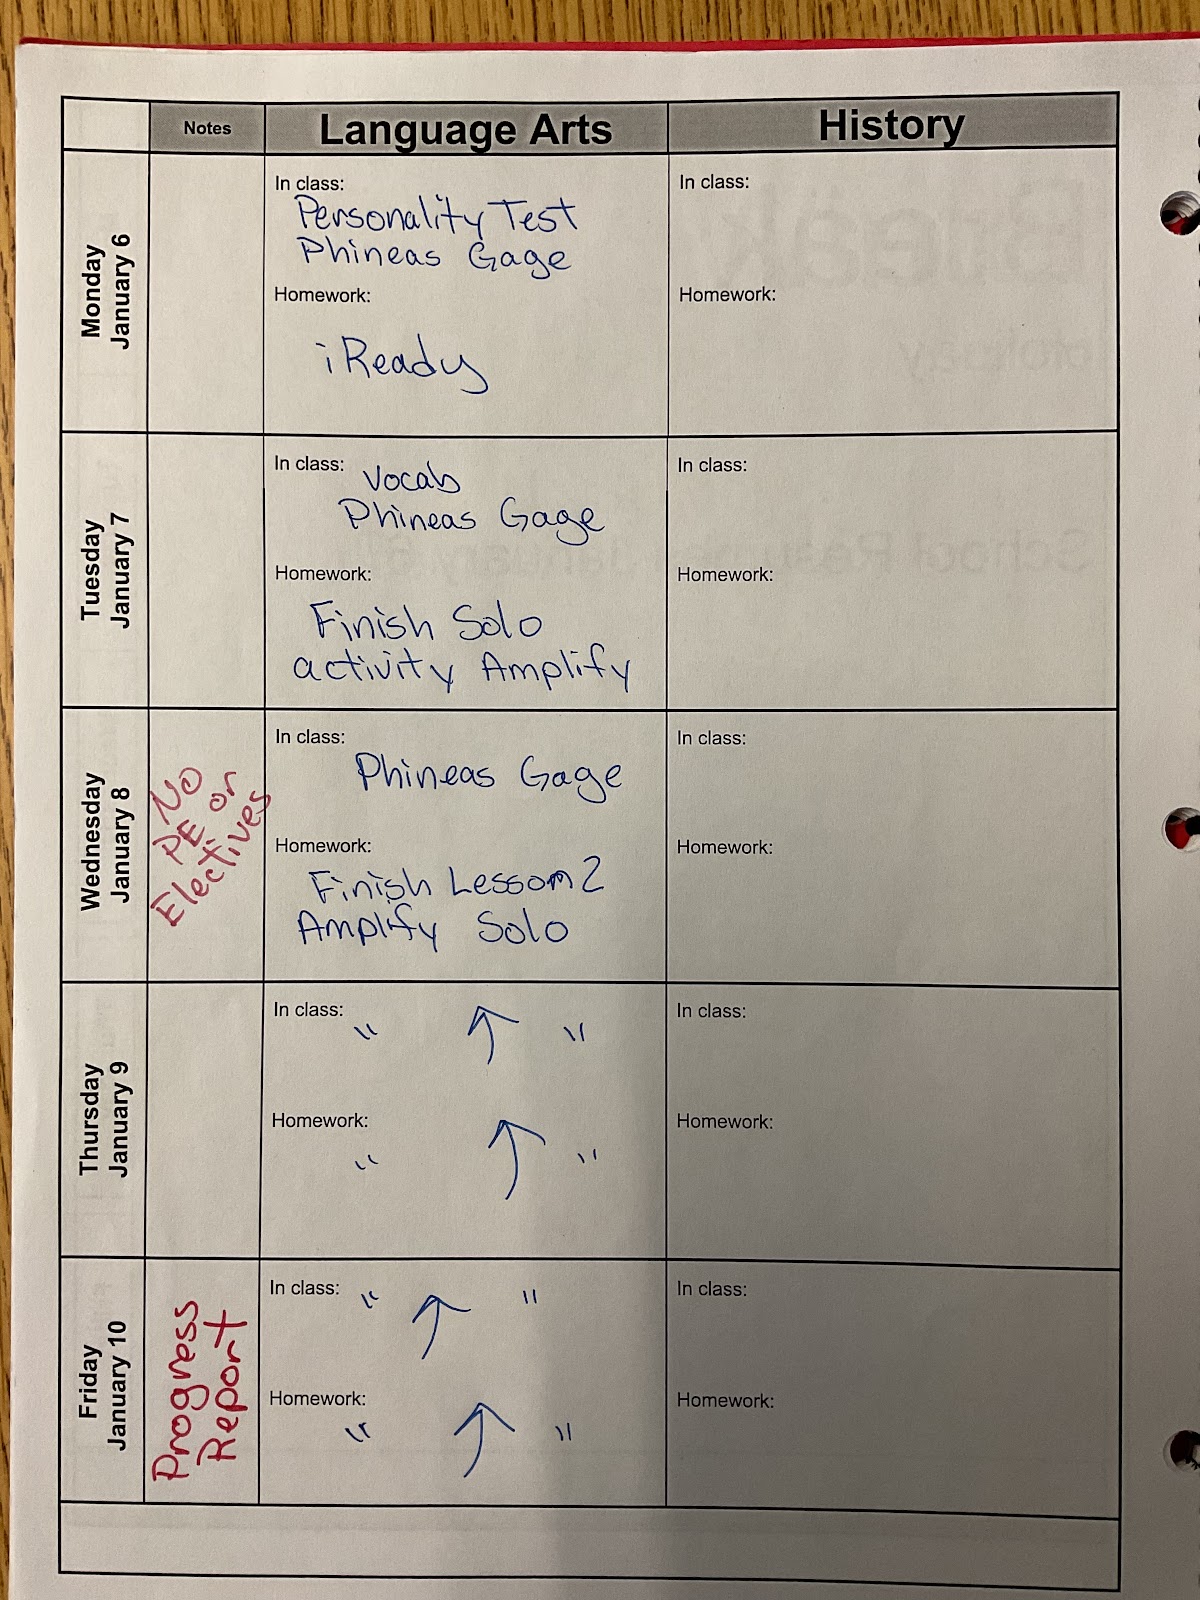 Notes
Language Arts
History
Monday
January 6
In class:
Personality Test
Phineas Gage
Homework:
iReady
In class:
Homework:
Tuesday
January 7
In class:
Vocab
Phineas Gage
Homework:
Finish Solo
activity Amplify
In class:
Homework:
Wednesday
January 8
No
PE or
Electives
In class:
Phineas Gage
Homework:
Finish Lesson 2
Amplify Solo
In class:
Homework:
Thursday
January 9
In class:
" ↑ "
Homework:
" ↑ "
In class:
Homework:
Friday
January 10
Progress
Report
In class:
" ↑ "
Homework:
" ↑ "
In class:
Homework: